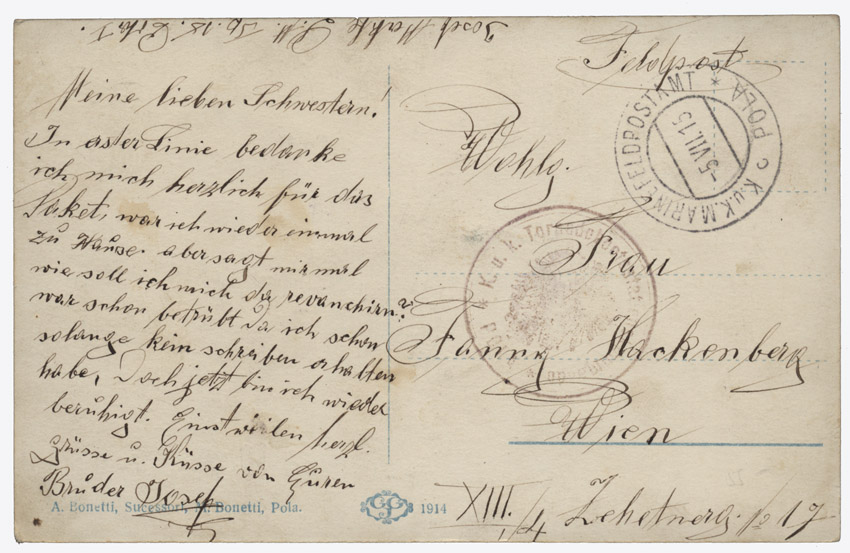 Meine lieben Schwestern!
In erster Linie bedanke
ich mich herzlich für das
Paket, war ich wieder einmal
zu Hause. aber sagt mir mal
wie soll ich mich da revanchirn?
war schon betrübt da ich schon
solange kein schreiben erhalten
habe, Doch jetzt bin ich wieder
beruhigt. Einstweilen herzl.
Grüsse u. Küsse von Euren
Bruder Josef
A. Bonetti, Sucessori, M. Bonetti, Pola.
1914
Feldpost
K.u.K. MARINEFELDPOSTAMT * POLA C
-5.VII.15
Wohlg.
K. u. k.
Frau
Fanny Hackenberg
Wien
XIII./4
17
Josef